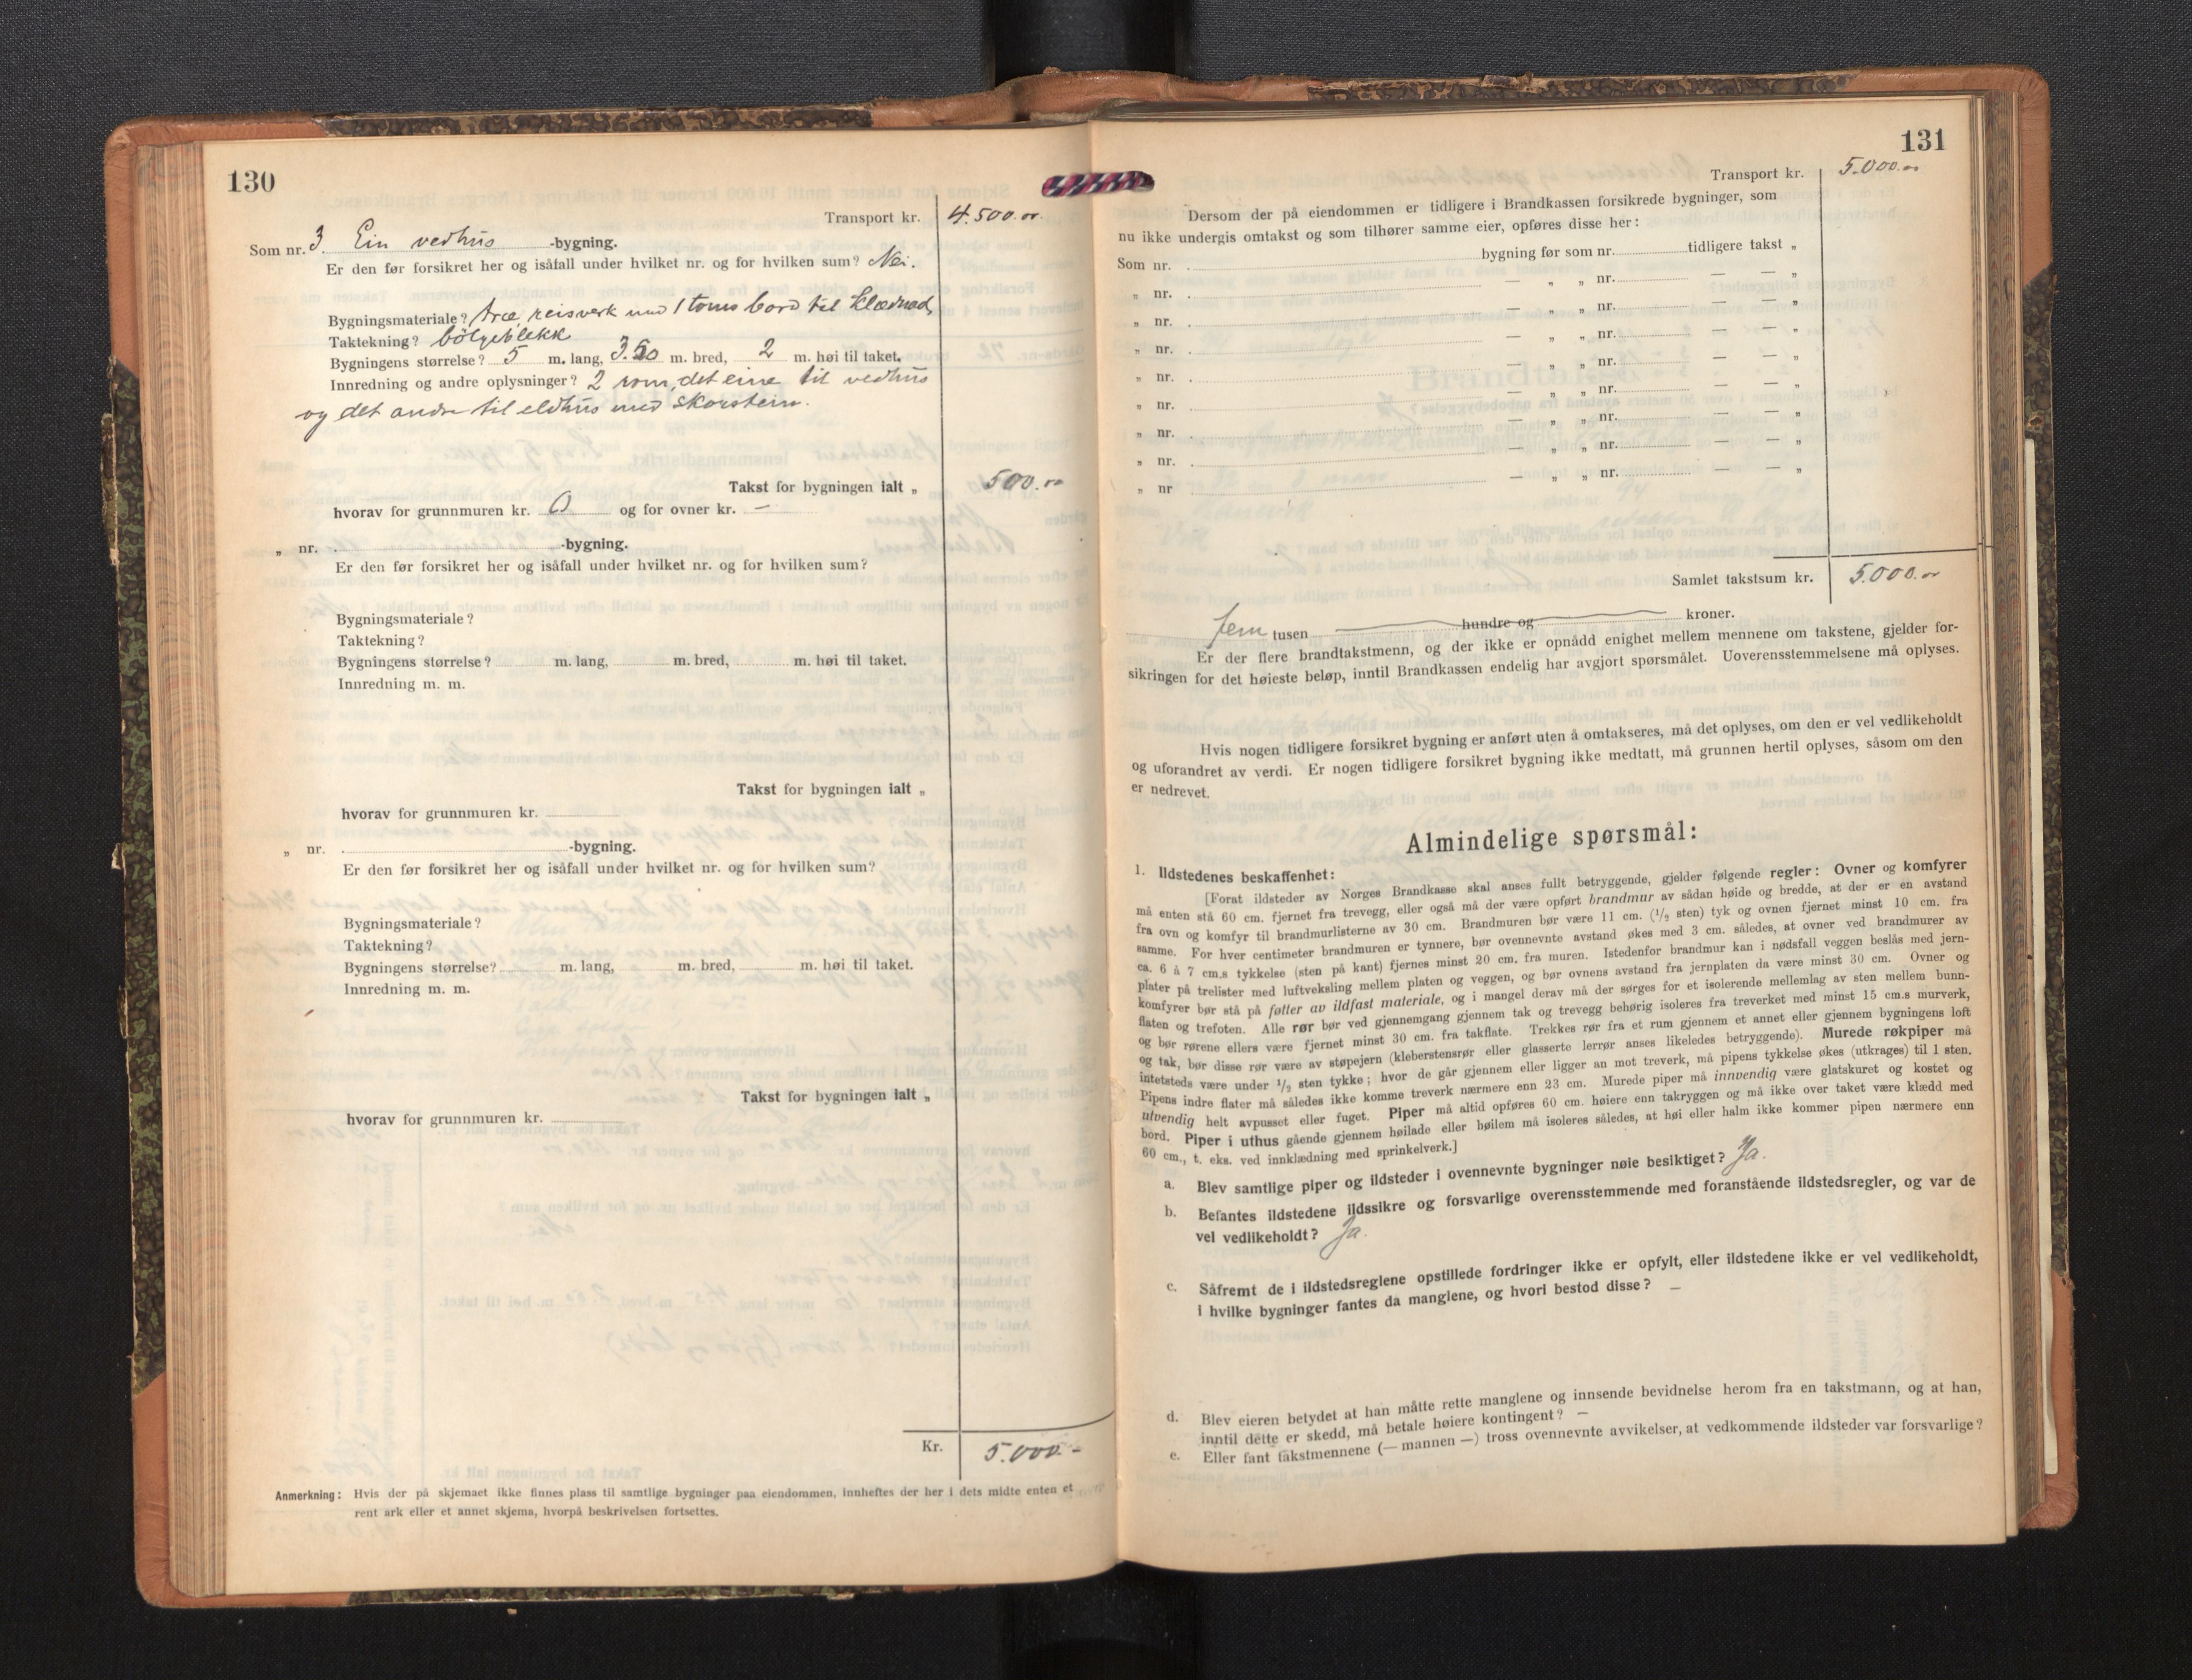 130
Transport kr. 4.500.00
Som nr. 3. Ein vedhus -bygning.
Er den før forsikret her og isåfall under hvilket nr. og for hvilken sum? Nei.
Bygningsmateriale? træ, reisverk med 1 toms bord til klædnad,
Taktekning? bölgeblekk
Bygningens størrelse? 5 m. lang, 3.50 m. bred, 2 m. høi til taket.
Innredning og andre oplysninger? 2 rom, det eine til vedhus
og det andre til eldhus med skorstein.
Takst for bygningen ialt „ 500.00
hvorav for grunnmuren kr. 0 og for ovner kr. —
„ nr. -bygning.
Er den før forsikret her og isåfall under hvilket nr. og for hvilken sum?
Bygningsmateriale?
Taktekning?
Bygningens størrelse? m. lang, m. bred, m. høi til taket.
Innredning m. m.
Takst for bygningen ialt „
hvorav for grunnmuren kr.
„ nr. -bygning.
Er den før forsikret her og isåfall under hvilket nr. og for hvilken sum?
Bygningsmateriale?
Taktekning?
Bygningens størrelse? m. lang, m. bred, m. høi til taket.
Innredning m. m.
Takst for bygningen ialt „
hvorav for grunnmuren kr.
Kr. 5.000.-
Anmerkning: Hvis der på skjemaet ikke finnes plass til samtlige bygninger paa eiendommen, innheftes der her i dets midte enten et
rent ark eller et annet skjema, hvorpå beskrivelsen fortsettes.
131
Transport kr. 5.000.00
Dersom der på eiendommen er tidligere i Brandkassen forsikrede bygninger, som
nu ikke undergis omtakst og som tilhører samme eier, opføres disse her:
Som nr. bygning før som nr. tidligere takst „
„ nr. — „ „ nr. — — „
„ nr. — „ „ nr. — — „
„ nr. — „ „ nr. — — „
„ nr. — „ „ nr. — — „
„ nr. — „ „ nr. — — „
„ nr. — „ „ nr. — — „
„ nr. — „ „ nr. — — „
„ nr — „ „ nr. — — „
Samlet takstsum kr. 5.000.00
fem tusen hundre og kroner.
Er der flere brandtakstmenn, og der ikke er opnådd enighet mellem mennene om takstene, gjelder for-
sikringen for det høieste beløp, inntil Brandkassen endelig har avgjort spørsmålet. Uoverensstemmelsene må oplyses.
Hvis nogen tidligere forsikret bygning er anført uten å omtakseres, må det oplyses, om den er vel vedlikeholdt
og uforandret av verdi. Er nogen tidligere forsikret bygning ikke medtatt, må grunnen hertil oplyses, såsom om den
er nedrevet.
Almindelige spørsmål:
1. Ildstedenes beskaffenhet:
[Forat ildsteder av Norges Brandkasse skal anses fullt betryggende, gjelder følgende regler: Ovner og komfyrer
må enten stå 60 cm. fjernet fra trevegg, eller også må der være opført brandmur av sådan høide og bredde, at der er en avstand
fra ovn og komfyr til brandmurlisterne av 30 cm. Brandmuren bør være 11 cm. (1/2 sten) tyk og ovnen fjernet minst 10 cm. fra
samme. For hver centimeter brandmuren er tynnere, bør ovennevnte avstand økes med 3 cm. således, at ovner ved brandmurer av
ca. 6 à 7 cm.s tykkelse (sten på kant) fjernes minst 20 cm. fra muren. Istedenfor brandmur kan i nødsfall veggen beslås med jern-
plater på trelister med luftveksling mellem platen og veggen, og bør ovnens avstand fra jernplaten da være minst 30 cm. Ovner og
komfyrer bør stå på føtter av ildfast materiale, og i mangel derav må der sørges for et isolerende mellemlag av sten mellem bunn-
flaten og trefoten. Alle rør bør ved gjennemgang gjennem tak og trevegg behørig isoleres fra treverket med minst 15 cm.s murverk,
og bør rørene ellers være fjernet minst 30 cm. fra takflate. Trekkes rør fra et rum gjennem et annet eller gjennem bygningens loft
og tak, bør disse rør være av støpejern (kleberstensrør eller glasserte lerrør anses likeledes betryggende). Murede røkpiper må
intetsteds være under 1/2 sten tykke; hvor de går gjennem eller ligger an mot treverk, må pipens tykkelse økes (utkrages) til 1 sten.
Pipens indre flater må således ikke komme treverk nærmere enn 23 cm. Murede piper må innvendig være glatskuret og kostet og
utvendig helt avpusset eller fuget. Piper må altid opføres 60 cm. høiere enn takryggen og må ikke over taket være klædd med
bord. Piper i uthus gående gjennem høilade eller høilem må isoleres således, at høi eller halm ikke kommer pipen nærmere enn
60 cm., t. eks. ved innklædning med sprinkelverk.]
a. Blev samtlige piper og ildsteder i ovennevnte bygninger nøie besiktiget? Ja.
b. Befantes ildstedene ildssikre og forsvarlige overensstemmende med foranstående ildstedsregler, og var de
vel vedlikeholdt? Ja.
c. Såfremt de i ildstedsreglene opstillede fordringer ikke er opfylt, eller ildstedene ikke er vel vedlikeholdt,
i hvilke bygninger fantes da manglene, og hvori bestod disse? —
d. Blev eieren betydet at han måtte rette manglene og innsende bevidnelse herom fra en takstmann, og at han,
inntil dette er skedd, må betale høiere kontingent? —
e. Eller fant takstmennene (— mannen —) tross ovennevnte avvikelser, at vedkommende ildsteder var forsvarlige?